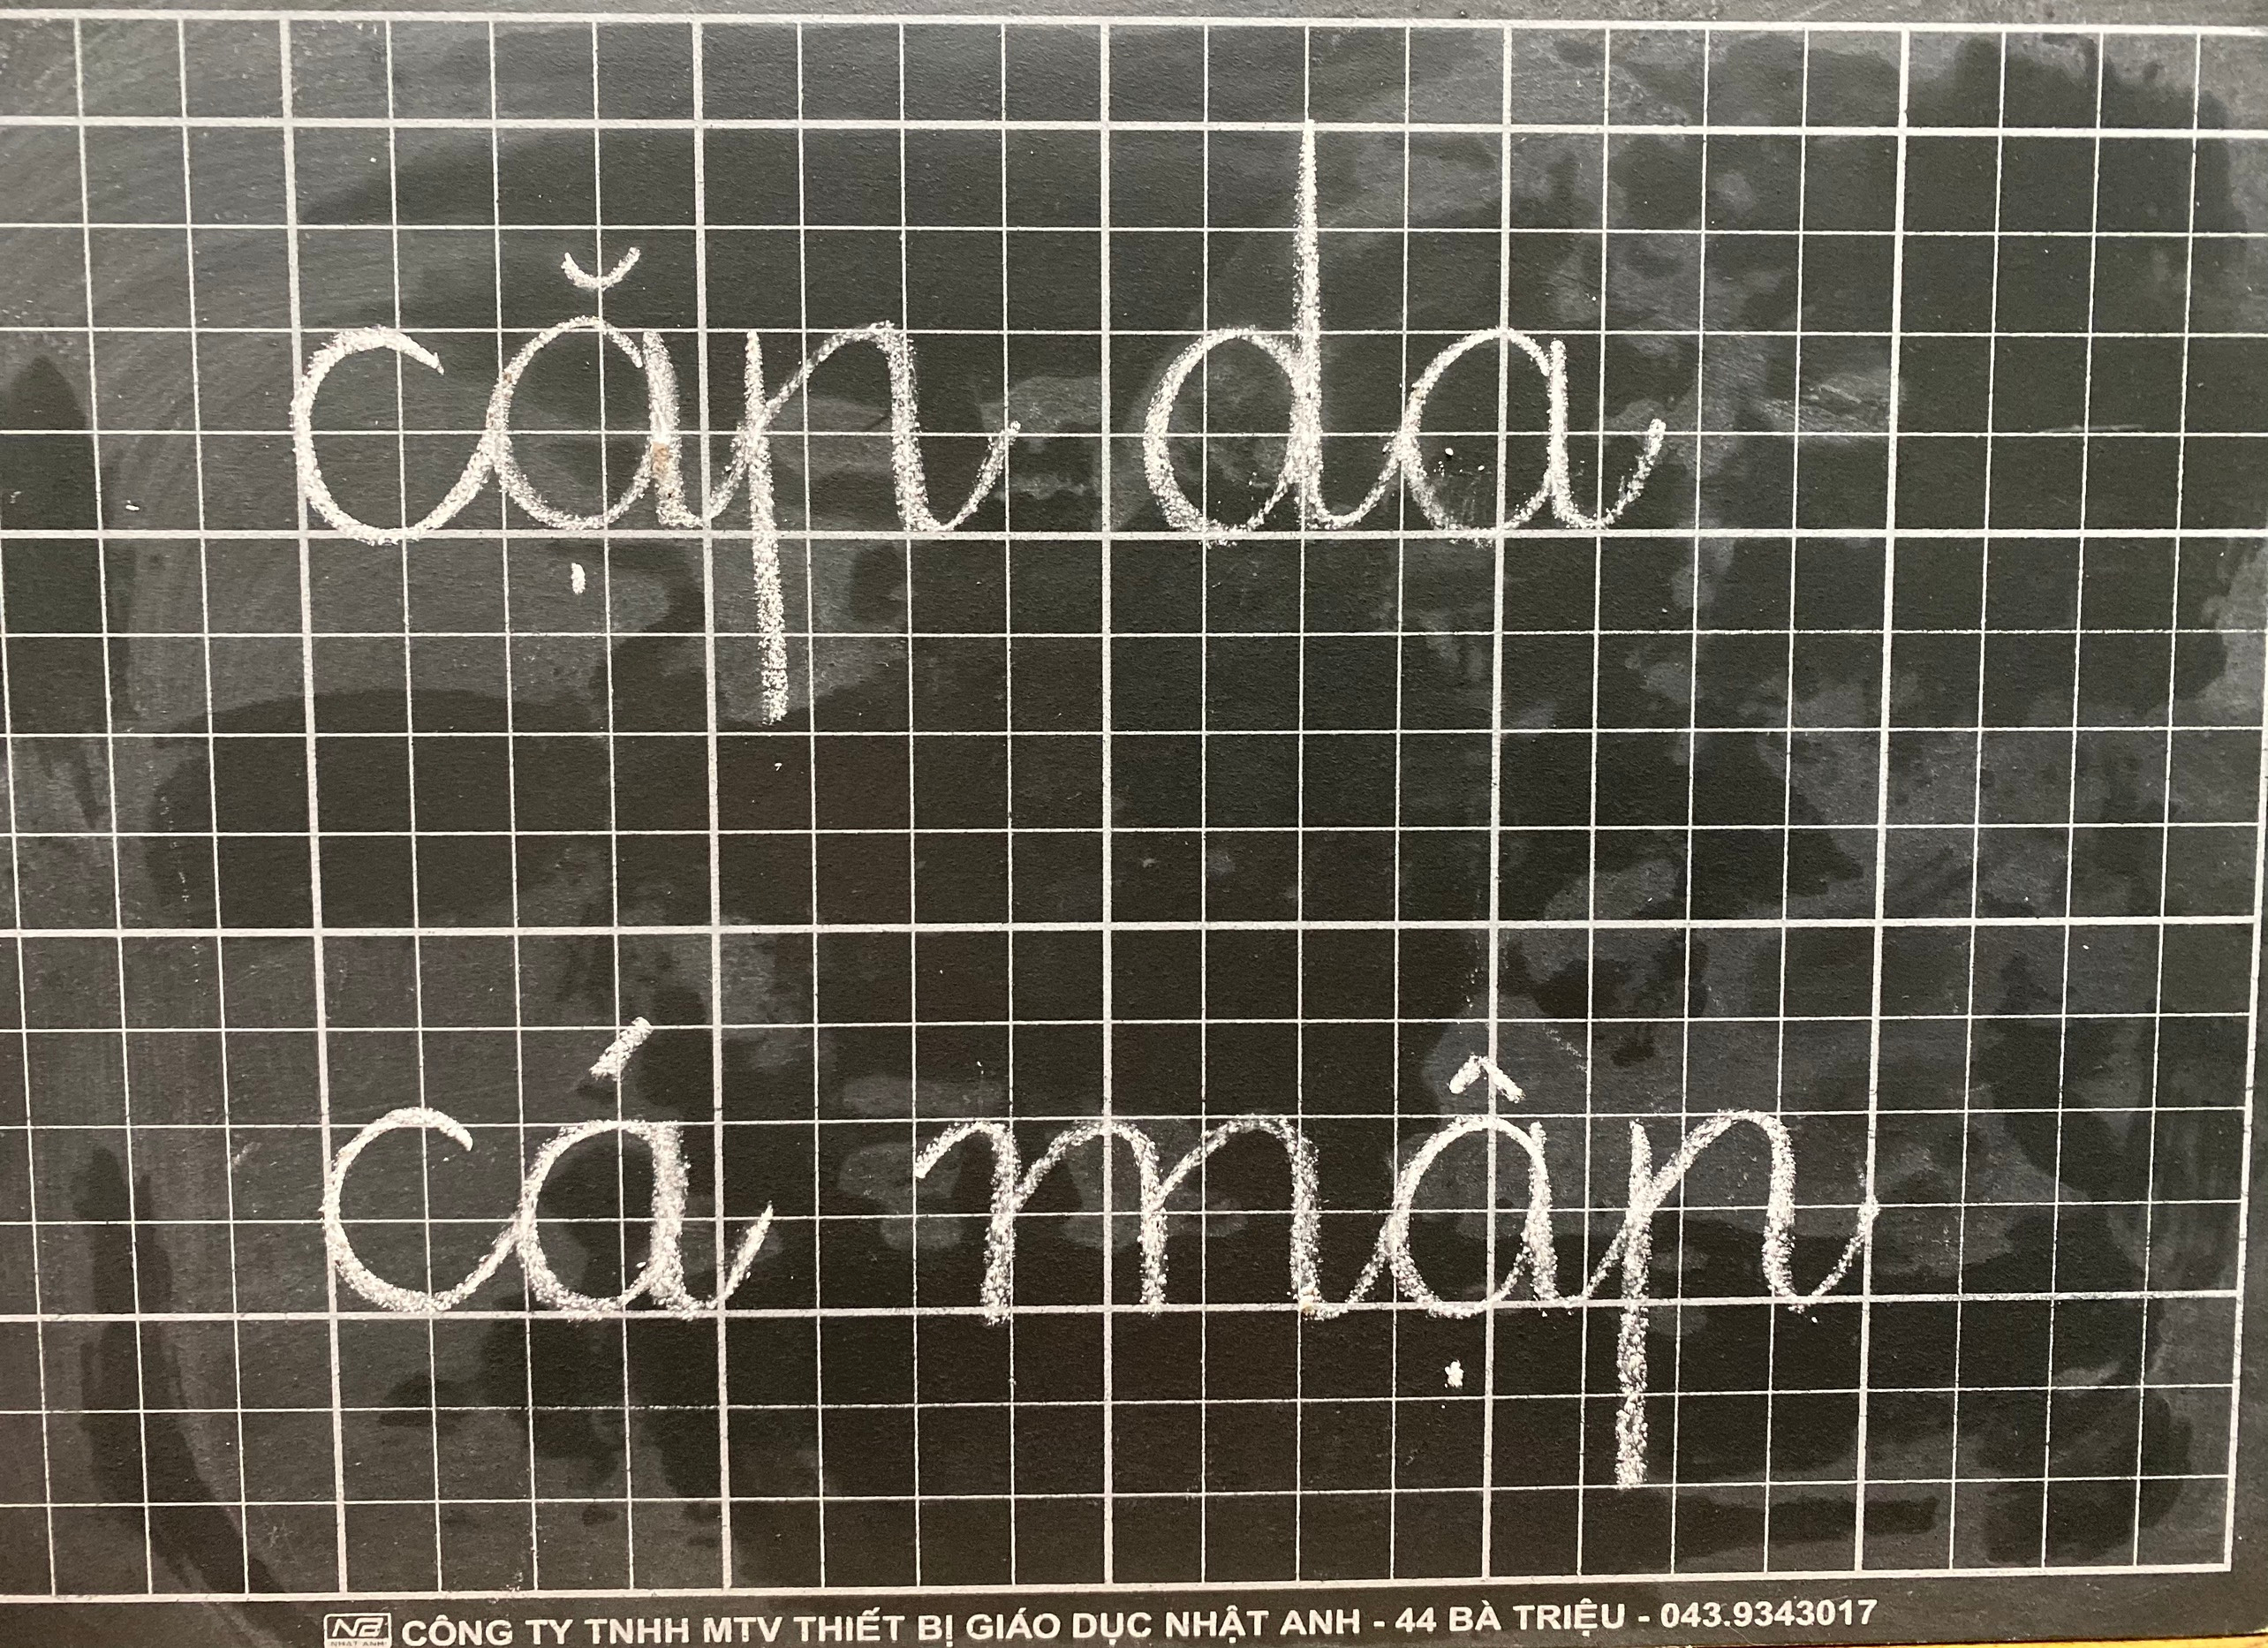 cặp da
cá mập
NA NHAT ANH CÔNG TY TNHH MTV THIẾT BỊ GIÁO DỤC NHẬT ANH - 44 BÀ TRIỆU - 043.9343017